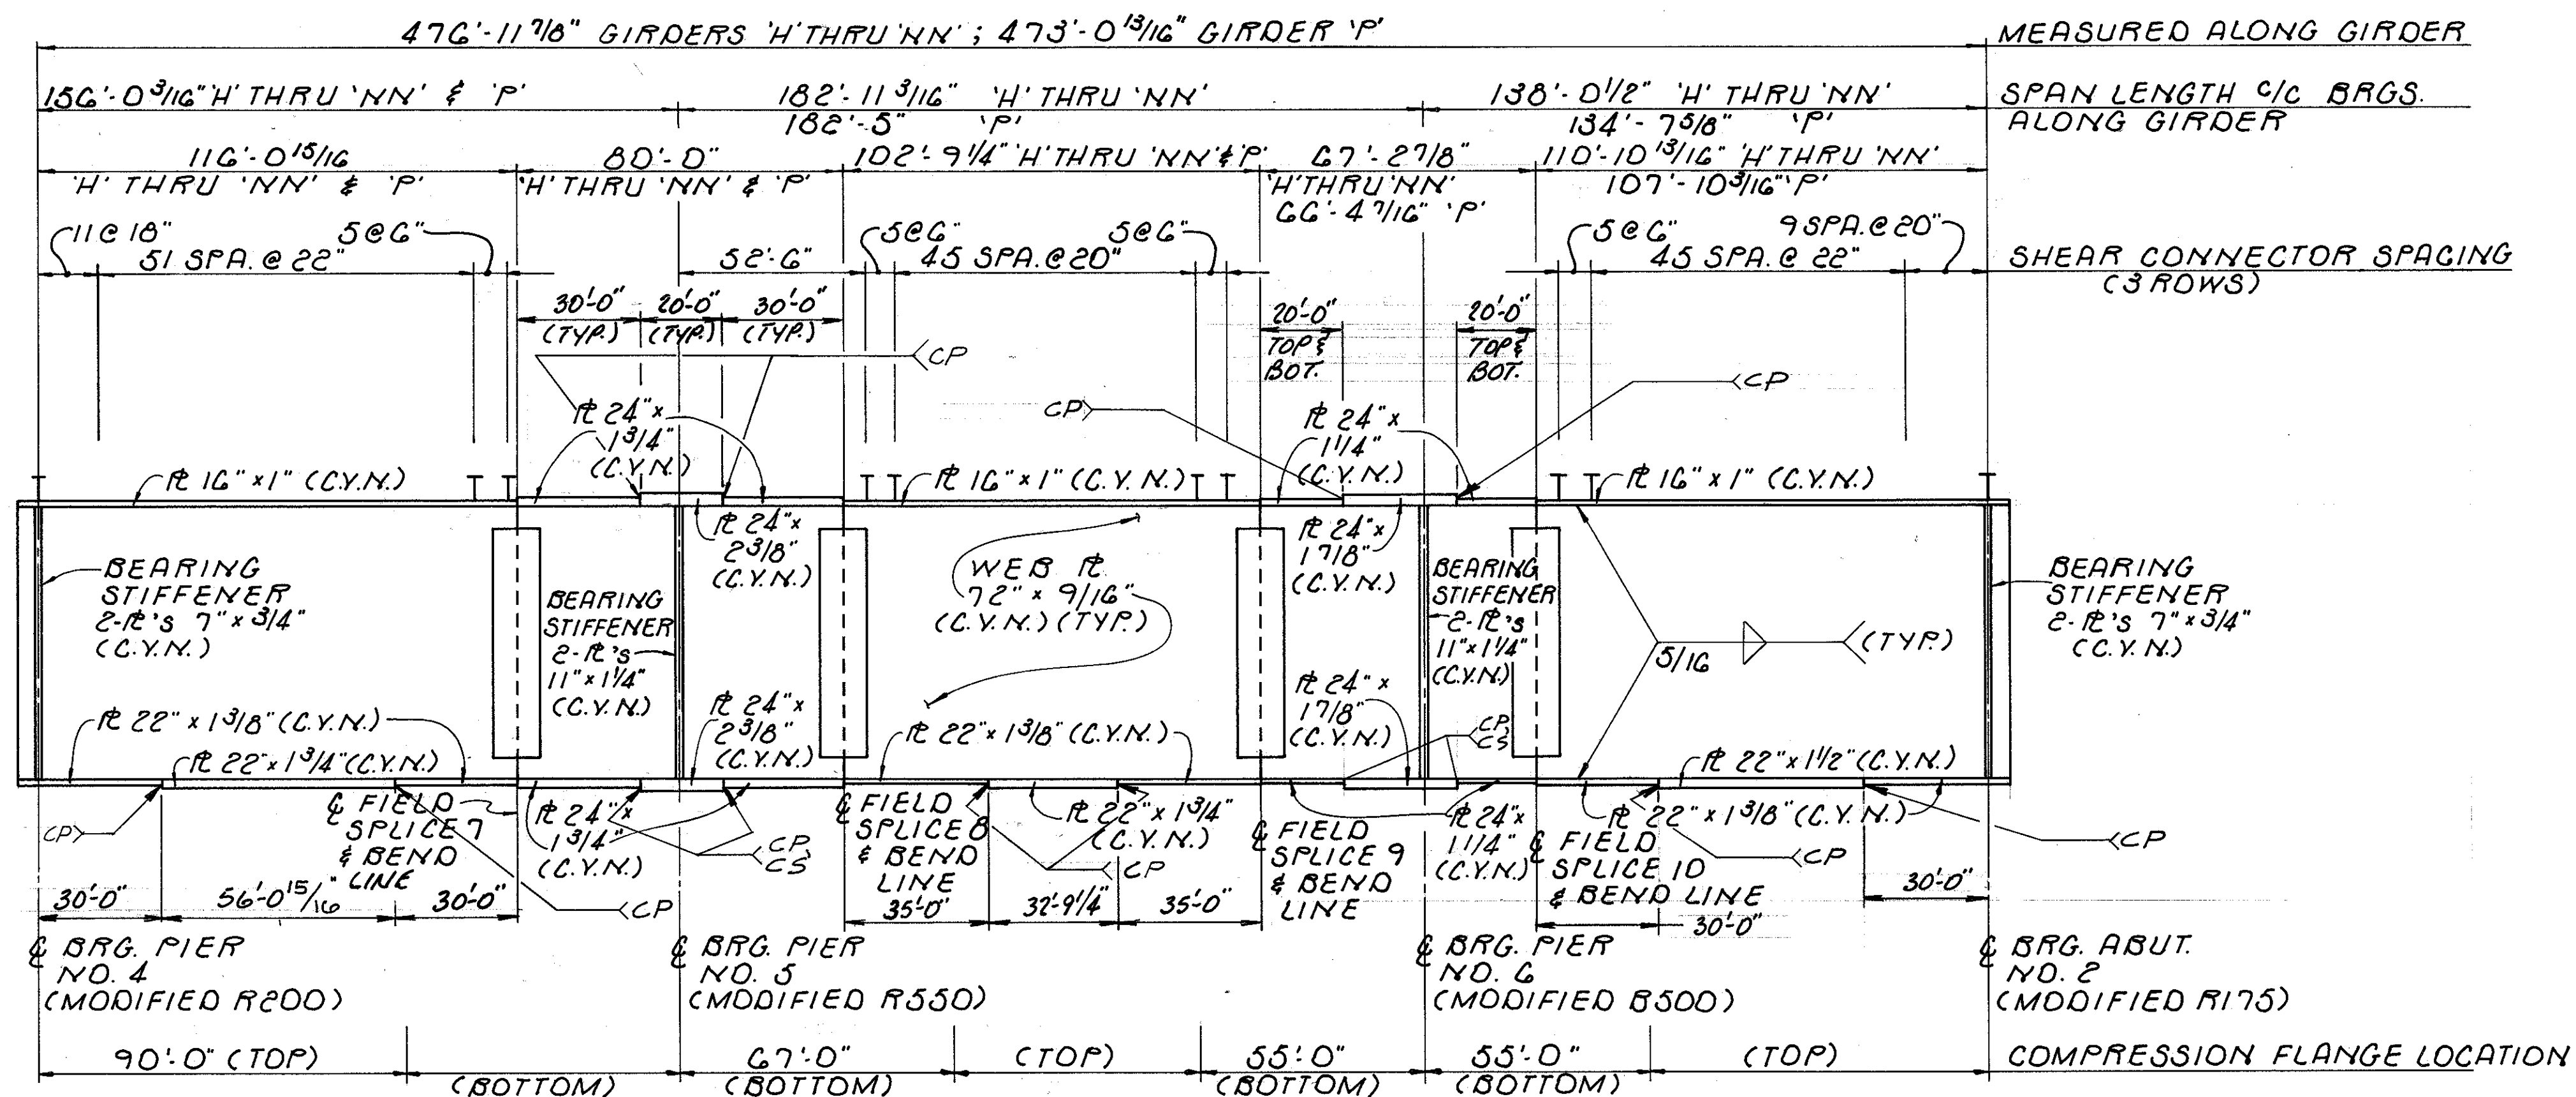 476'-11 7/8" GIRDERS 'H' THRU 'NN' ; 473'-0 13/16" GIRDER 'P'
MEASURED ALONG GIRDER
156'-0 3/16" 'H' THRU 'NN' & 'P'
182'-11 3/16" 'H' THRU 'NN'
182'-5" 'P'
138'-0 1/2" 'H' THRU 'NN'
134'-7 5/8" 'P'
SPAN LENGTH C/C BRGS.
ALONG GIRDER
116'-0 15/16
'H' THRU 'NN' & 'P'
80'-0"
'H' THRU 'NN' & 'P'
102'-9 1/4" 'H' THRU 'NN' & 'P'
67'-2 7/8"
'H' THRU 'NN'
66'-4 7/16" 'P'
110'-10 13/16" 'H' THRU 'NN'
107'-10 3/16" 'P'
11 @ 18"
51 SPA. @ 22"
5 @ 6"
52'-6"
5 @ 6"
45 SPA. @ 20"
5 @ 6"
5 @ 6"
45 SPA. @ 22"
9 SPA. @ 20"
SHEAR CONNECTOR SPACING
(3 ROWS)
30'-0"
(TYP.)
20'-0"
(TYP.)
30'-0"
(TYP.)
20'-0"
TOP &
BOT.
20'-0"
TOP &
BOT.
CP
CP
CP
℄ 24" x
1 3/4"
(C.V.N.)
℄ 24" x
1 1/4"
(C.V.N.)
℄ 16" x 1" (C.V.N.)
℄ 16" x 1" (C.V.N.)
℄ 16" x 1" (C.V.N.)
℄ 24" x
2 3/8"
(C.V.N.)
℄ 24" x
1 7/8"
(C.V.N.)
BEARING
STIFFENER
2-℄'s 7" x 3/4"
(C.V.N.)
BEARING
STIFFENER
2-℄'s
11" x 1 1/4"
(C.V.N.)
WEB ℄
72" x 9/16"
(C.V.N.) (TYP.)
BEARING
STIFFENER
2-℄'s
11" x 1 1/4"
(C.V.N.)
5/16
(TYP.)
BEARING
STIFFENER
2-℄'s 7" x 3/4"
(C.V.N.)
℄ 22" x 1 3/8" (C.V.N.)
℄ 22" x 1 3/4" (C.V.N.)
℄ 24" x
2 3/8"
(C.V.N.)
℄ 22" x 1 3/8" (C.V.N.)
℄ 24" x
1 7/8"
(C.V.N.)
CP
CS
℄ 22" x 1 1/2" (C.V.N.)
CP
℄ FIELD
SPLICE 7
& BEND
LINE
℄ 24" x
1 3/4"
(C.V.N.)
CP
CS
℄ FIELD
SPLICE 8
& BEND
LINE
℄ 22" x 1 3/4"
(C.V.N.)
CP
℄ FIELD
SPLICE 9
& BEND
LINE
℄ 24" x
1 1/4"
(C.V.N.)
℄ FIELD
SPLICE 10
& BEND LINE
℄ 22" x 1 3/8" (C.V.N.)
CP
CP
30'-0"
56'-0 15/16"
30'-0"
CP
35'-0"
32'-9 1/4"
35'-0"
30'-0"
30'-0"
℄ BRG. PIER
NO. 4
(MODIFIED R200)
℄ BRG. PIER
NO. 5
(MODIFIED R550)
℄ BRG. PIER
NO. 6
(MODIFIED B500)
℄ BRG. ABUT.
NO. 2
(MODIFIED R175)
90'-0" (TOP)
(BOTTOM)
67'-0"
(BOTTOM)
(TOP)
55'-0"
(BOTTOM)
55'-0"
(BOTTOM)
(TOP)
COMPRESSION FLANGE LOCATION